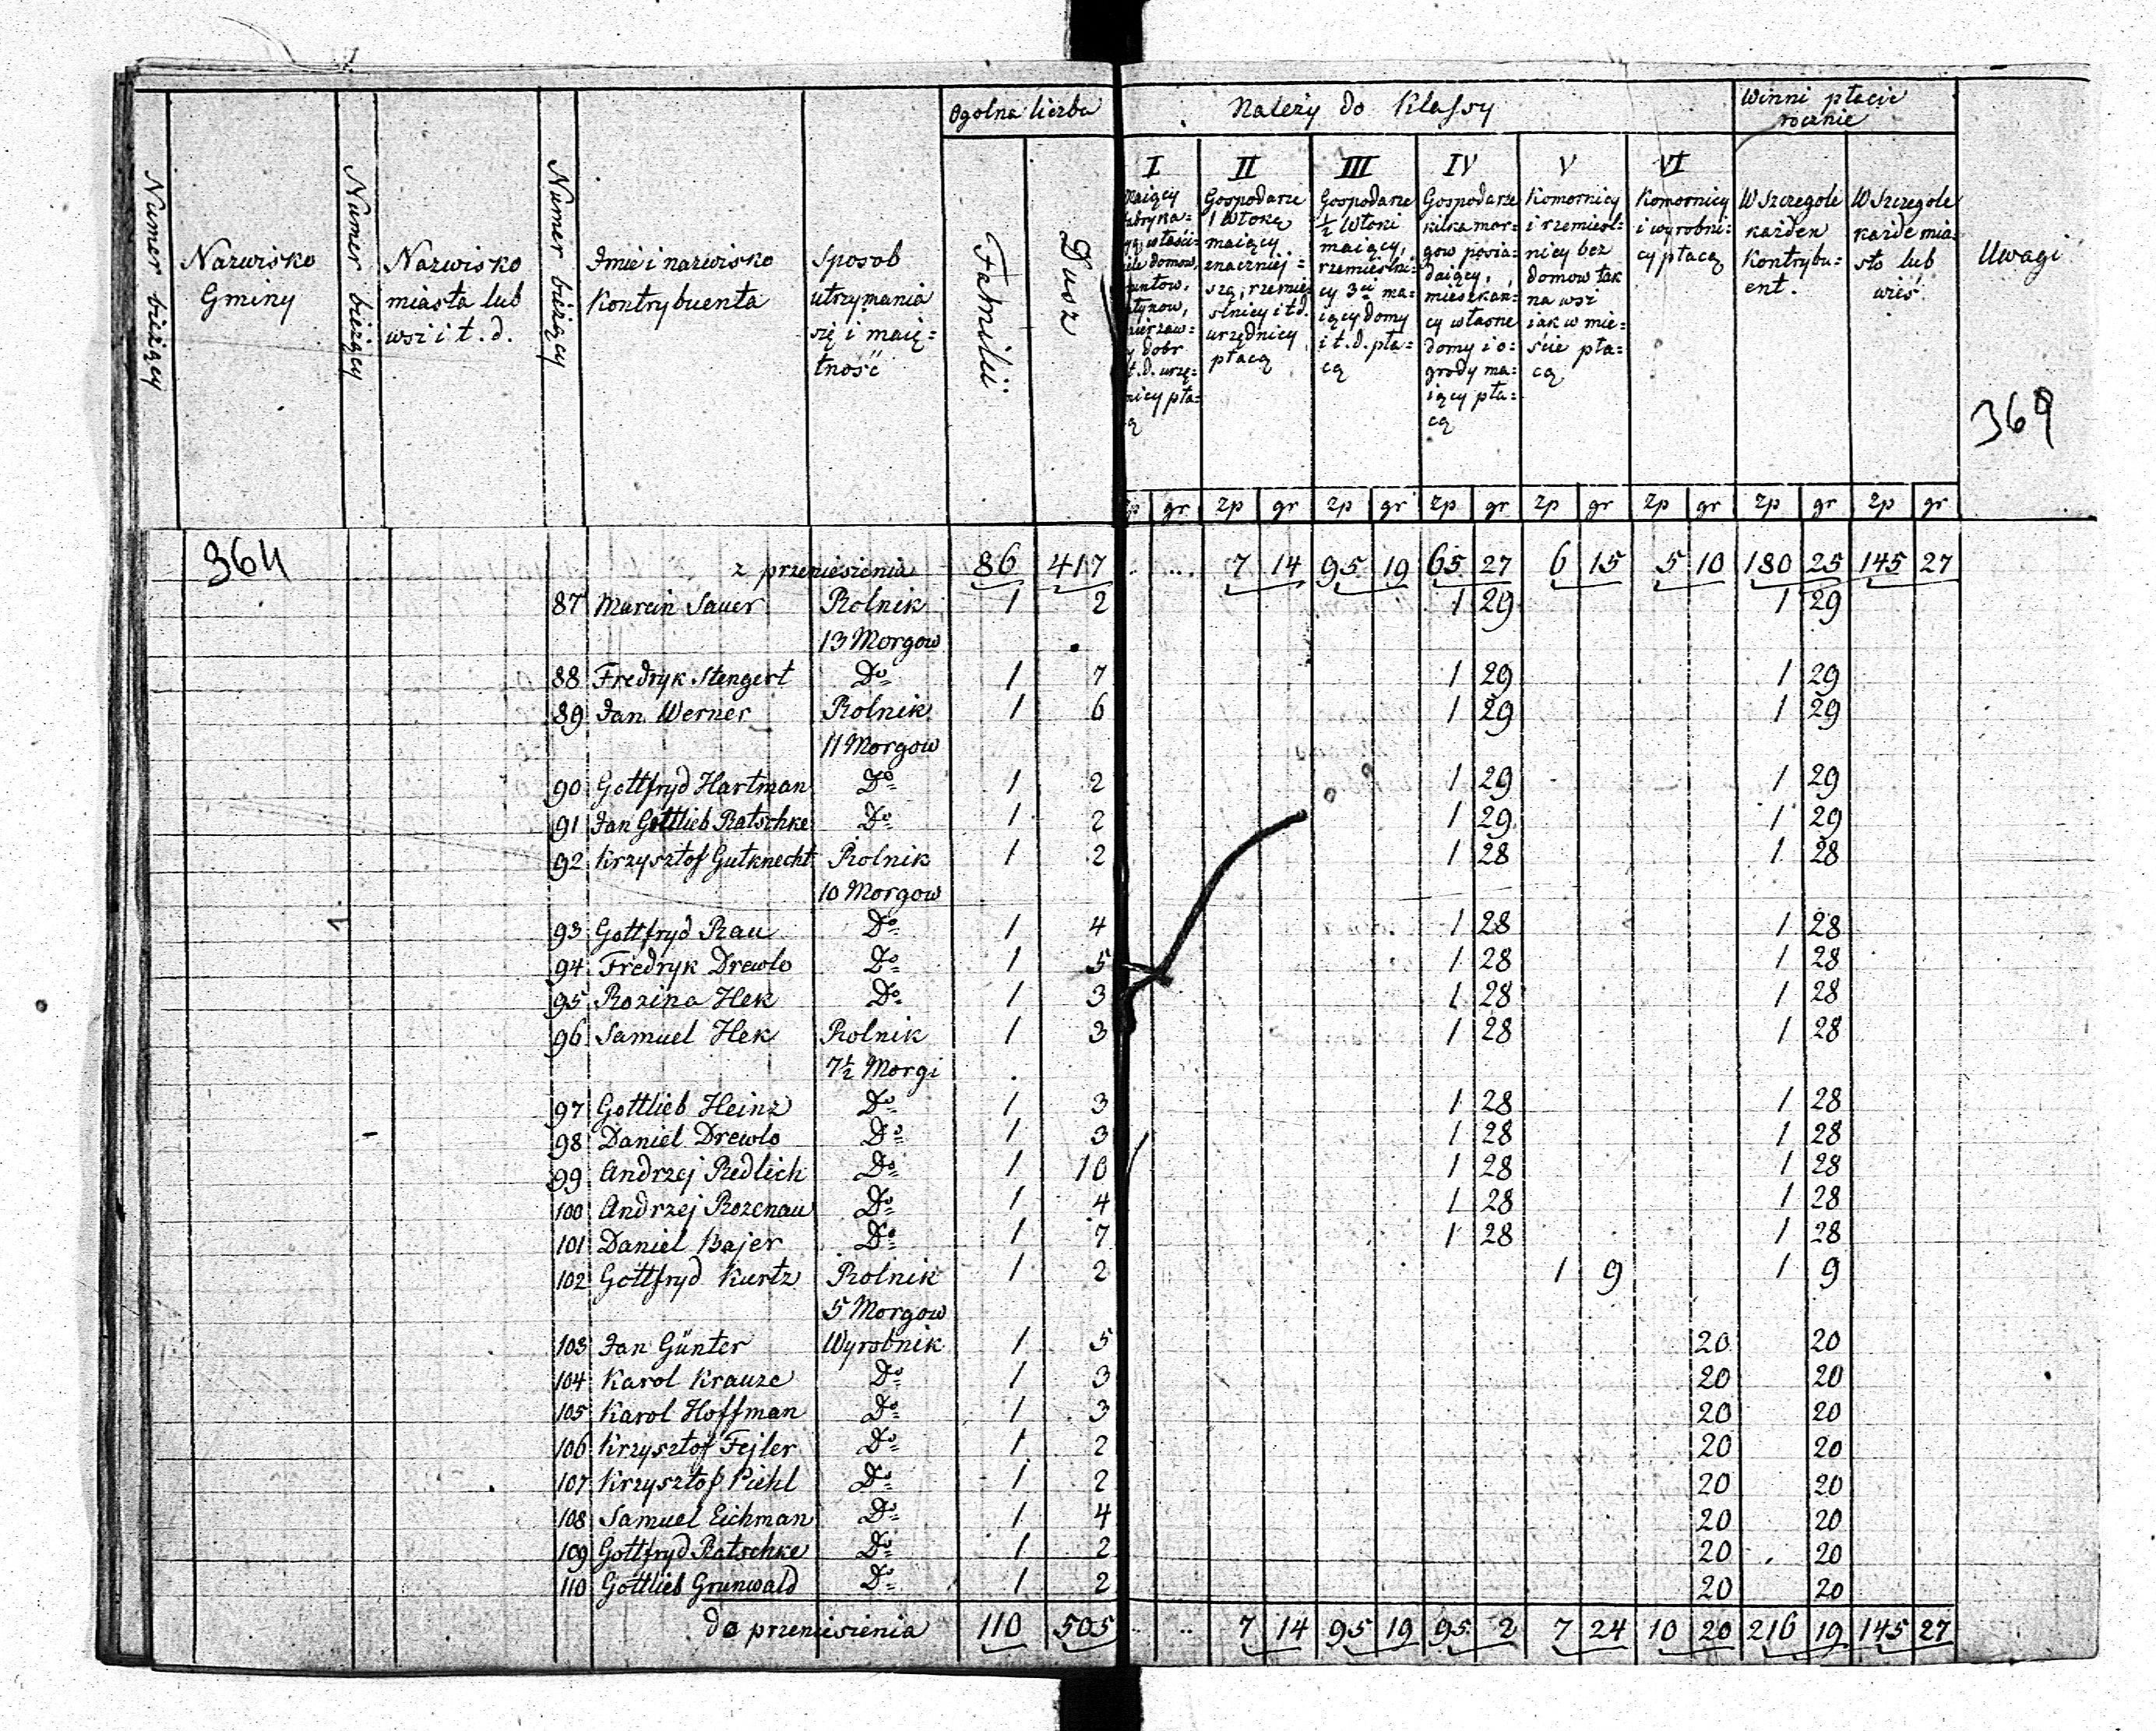 Ogolna liczba
Należy do Klassy
Winni płacić
rocznie
Numer bieżący
Nazwisko
Gminy
Numer bieżący
Nazwisko
miasta lub
wsi i t. d.
Numer bieżący
Imie i nazwisko
Kontrybuenta
Sposob
utrzymania
się i maię=
tność
Familii
Dusz
I
II
Gospodarze
1 Włokę
maiący
znaczniej=
szą, rzemie
ślnicy i t d.
urzędnicy
płacą
III
Gospodarze
½ Włoki
maiący,
rzemieślni=
cy 3ci ma=
iący domy
i t. d. pła=
cą
IV
Gospodarze
kilka mor=
gow posia=
daiący,
mieszkań=
cy własne
domy i o=
grody ma=
iący pła=
cą
V
Komornicy
i rzemieśl=
nicy bez
domow tak
na wsi
iak w mie=
ście pła=
cą
VI
Komornicy
i wyrobni=
cy płacą
W szczegole
każden
Kontrybu=
ent.
W szczegole
każde mia=
sto lub
wieś.
Uwagi
369
zp gr zp gr zp gr zp gr zp gr zp gr zp gr zp gr
364 z przeniesienia 86 417 7 14 95 19 65 27 6 15 5 10 180 25 145 27
87 Marcin Sauer Rolnik 1 2 1 29 1 29
13 Morgow
88 Fredryk Stengert Do 1 7 1 29 1 29
89 Jan Werner Rolnik 1 6 1 29 1 29
11 Morgow
90 Gottfryd Hartman Do 1 2 1 29 1 29
91 Jan Gottlieb Ratschke Do 1 2 1 29 1 29
92 Krzysztof Gutknecht Rolnik 1 2 1 28 1 28
10 Morgow
93 Gottfryd Rau Do 1 4 1 28 1 28
94 Fredryk Drewlo Do 1 5 1 28 1 28
95 Rozina Hek Do 1 3 1 28 1 28
96 Samuel Hek Rolnik 1 3 1 28 1 28
7½ Morgi
97 Gottlieb Heinz Do 1 3 1 28 1 28
98 Daniel Drewlo Do 1 3 1 28 1 28
99 Andrzej Redlich Do 1 10 1 28 1 28
100 Andrzej Rozenau Do 1 4 1 28 1 28
101 Daniel Bajer Do 1 7 1 28 1 28
102 Gottfryd Kurtz Rolnik 1 2 1 9 1 9
5 Morgow
103 Jan Günter Wyrobnik 1 5 20 20
104 Karol Krauze Do 1 3 20 20
105 Karol Hoffman Do 1 3 20 20
106 Krzysztof Fejler Do 1 2 20 20
107 Krzysztof Piehl Do 1 2 20 20
108 Samuel Eichman Do 1 4 20 20
109 Gottfryd Ratschke Do 1 2 20 20
110 Gottlieb Grunwald Do 1 2 20 20
do przeniesienia 110 505 7 14 95 19 95 2 7 24 10 20 216 19 145 27